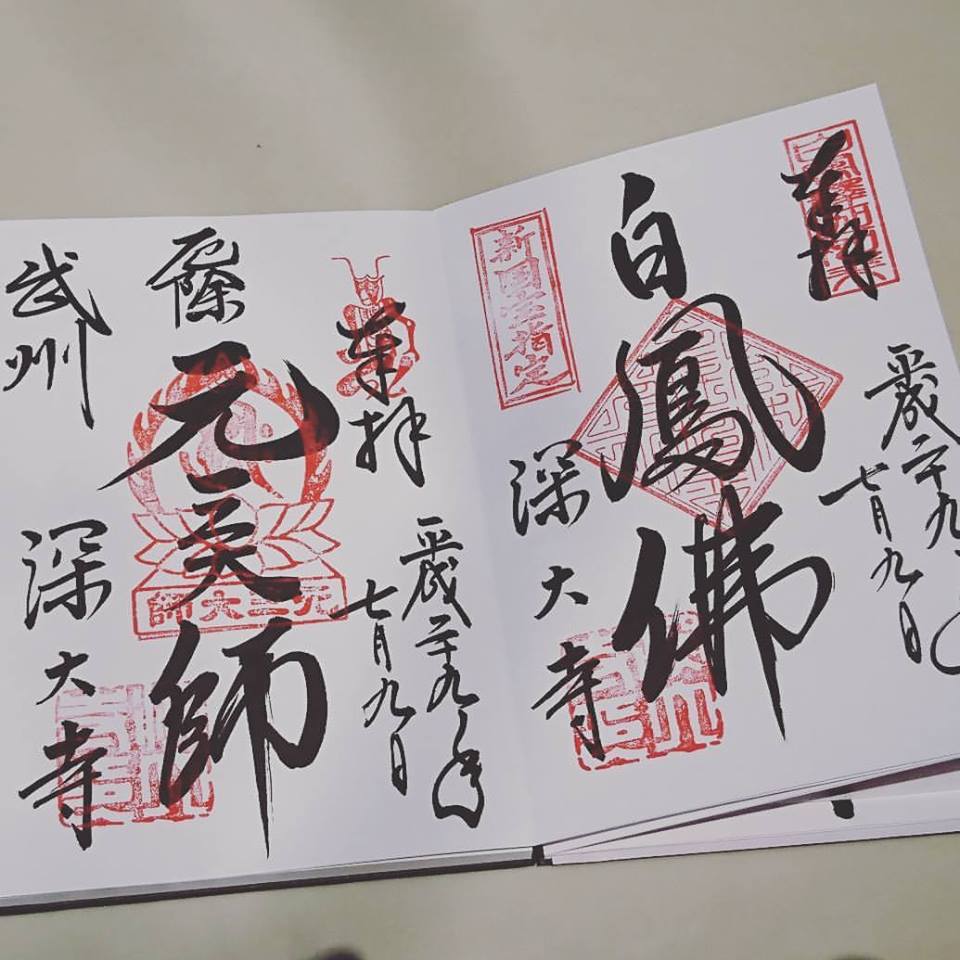 奉拝
平成二十九年
七月九日
白鳳佛
新国宝指定
深大寺
奉拝
平成二十九年
七月九日
厄除
元三大師
元三大師
武州
深大寺